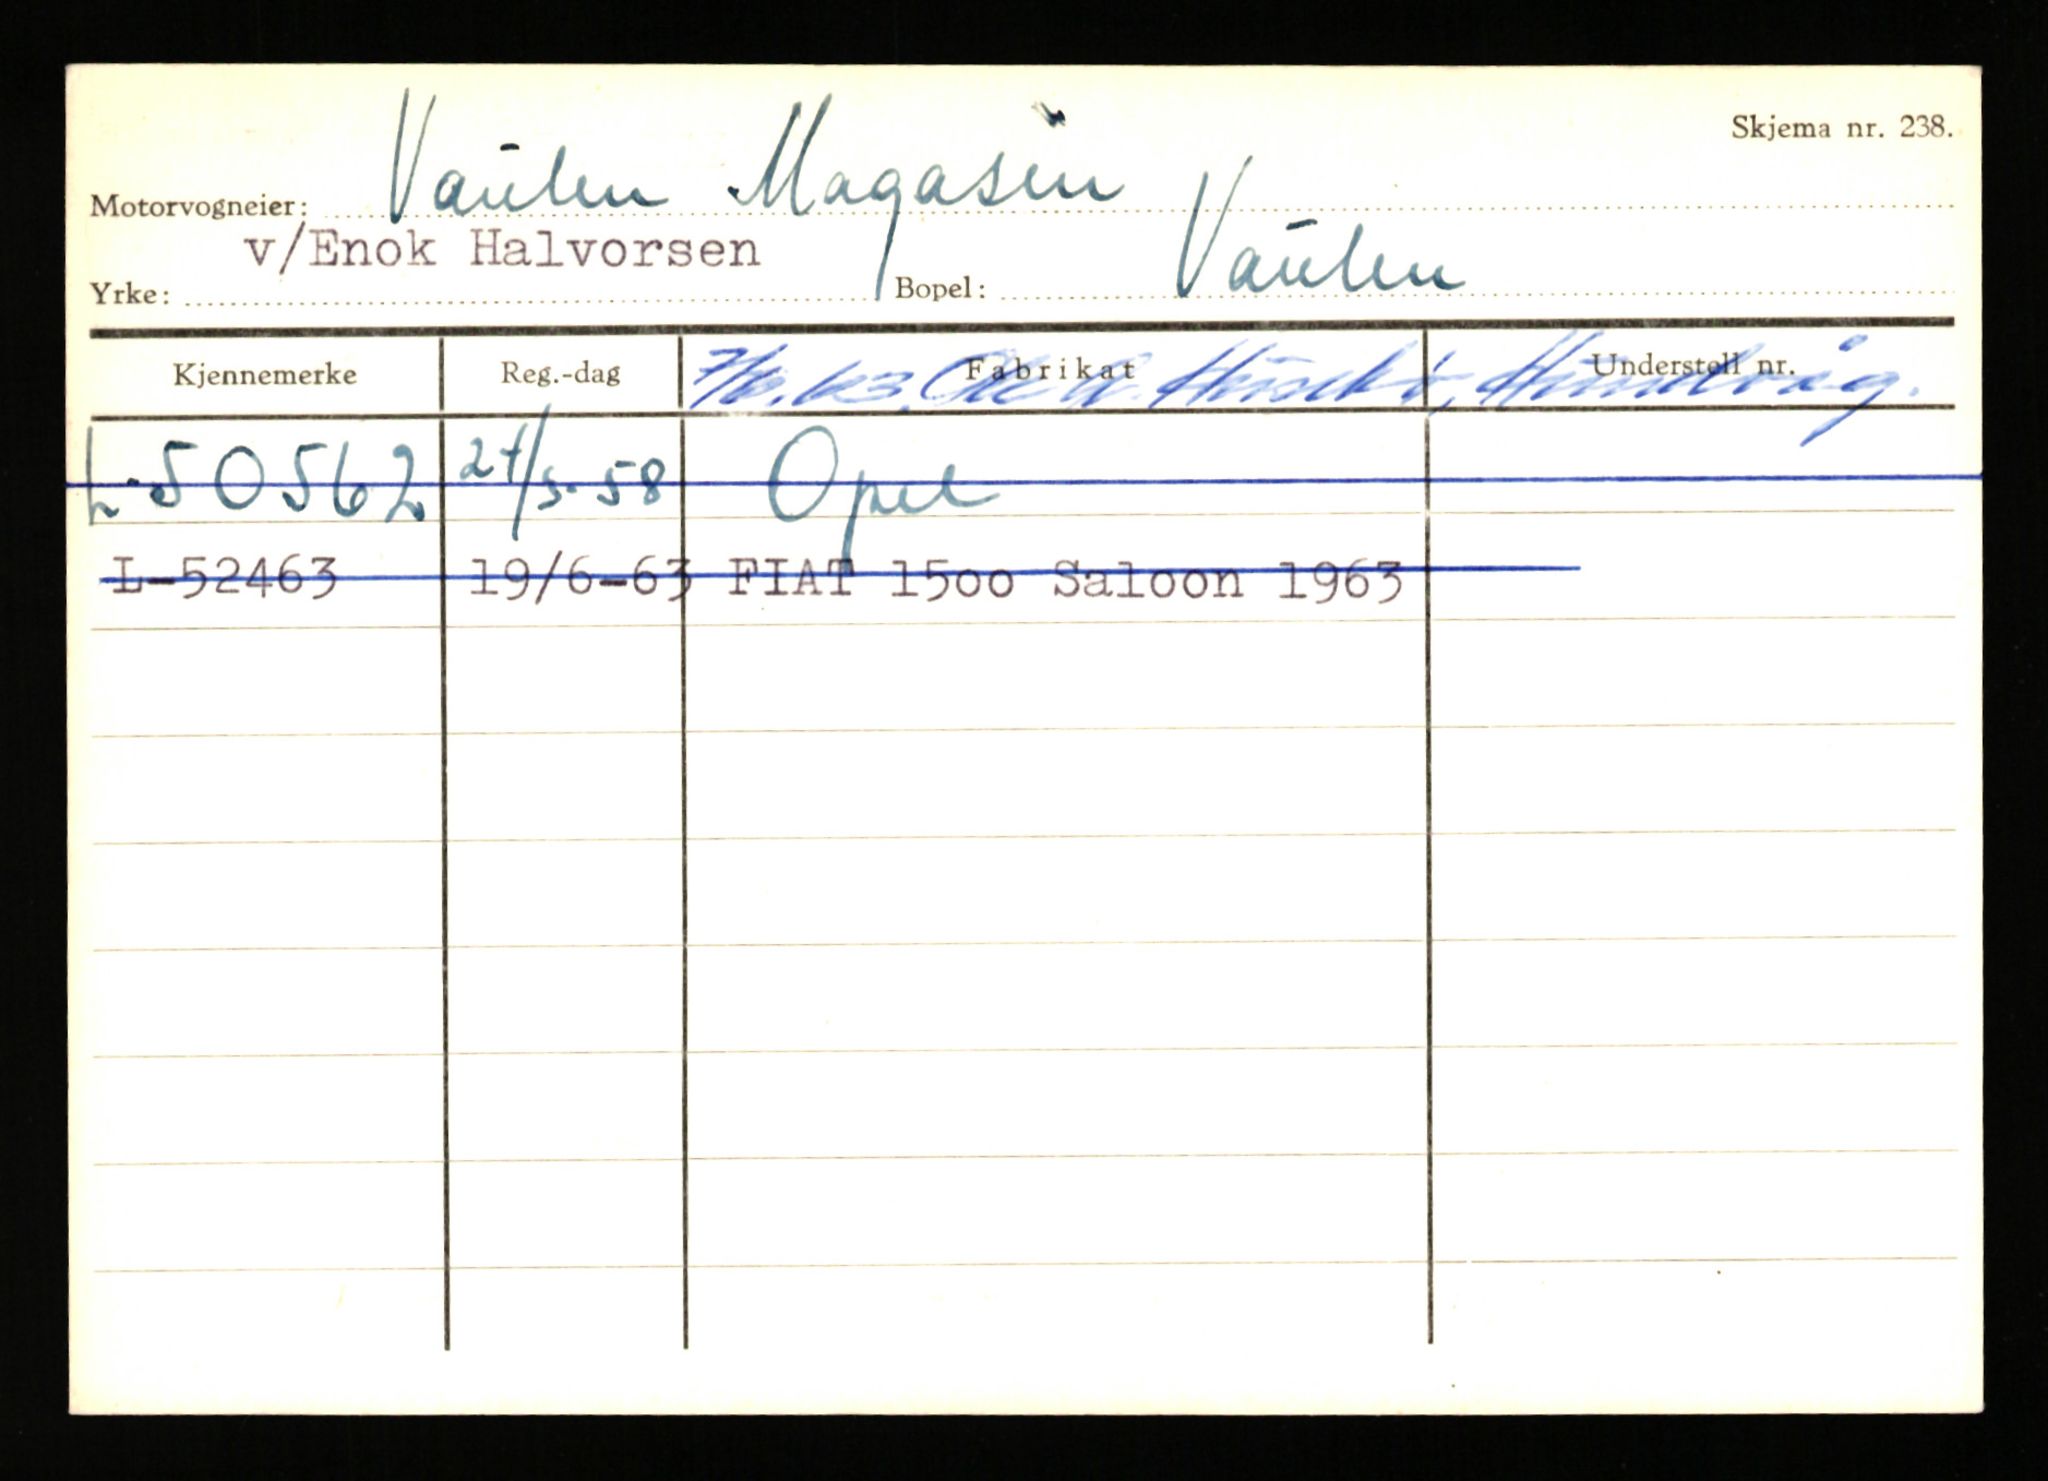 Skjema nr. 238.
Motorvogneier: Vaulen Magasin
v/Enok Halvorsen
Yrke: Bopel: Vaulen
Kjennemerke Reg.-dag Fabrikat Understell nr.
Hundvåg.
L-50562 24/5-58 Opel
L-52463 19/6-63 FIAT 1500 Saloon 1963